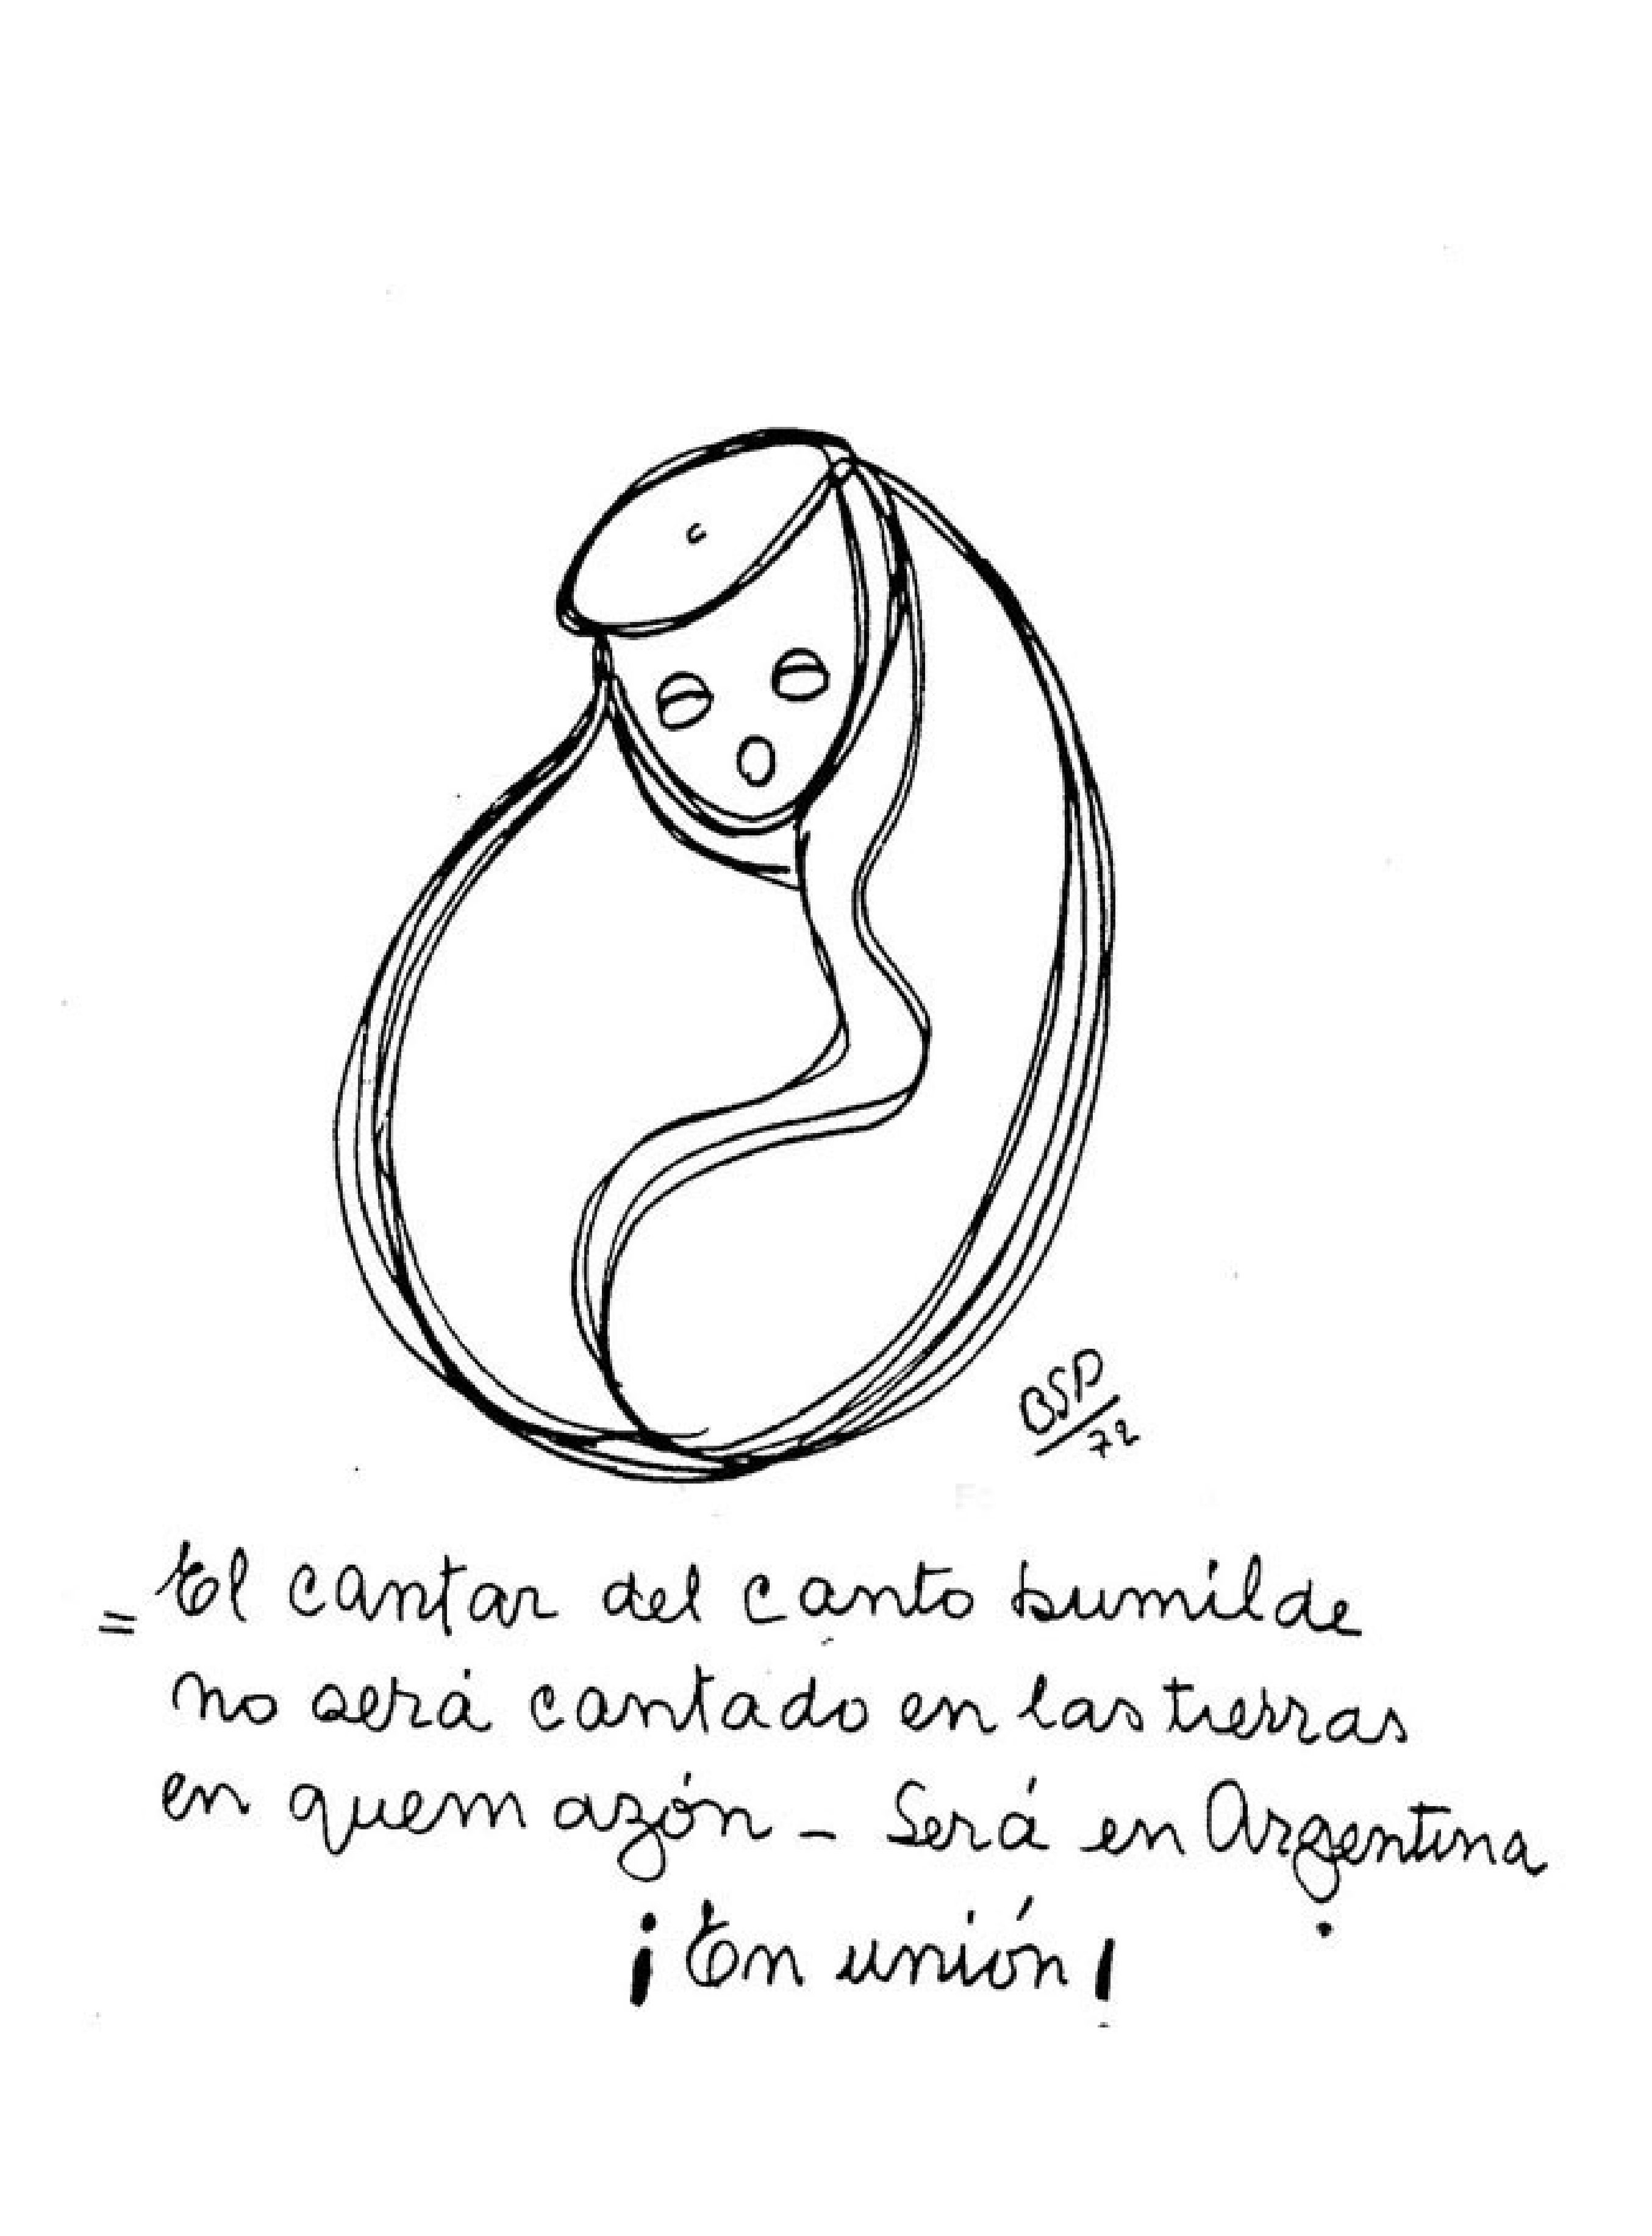 BSP/72
= El cantar del canto humilde
no será cantado en las tierras
en quemazón – Será en Argentina
¡En unión!